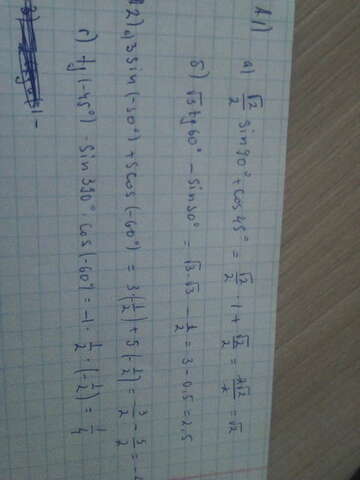 1)
а) √2/2 sin90° + cos45° = √2/2 · 1 + √2/2 = 2√2/2 = √2
б) √3 tg60° - sin30° = √3·√3 - 1/2 = 3 - 0,5 = 2,5
2) а) 3 sin(-30°) + 5cos(-60°) = 3·(1/2) + 5(-1/2) = 3/2 - 5/2 = -
г) tg(-45°) - sin390° · cos(-60°) = -1 · 1/2 · (-1/2) = 1/4